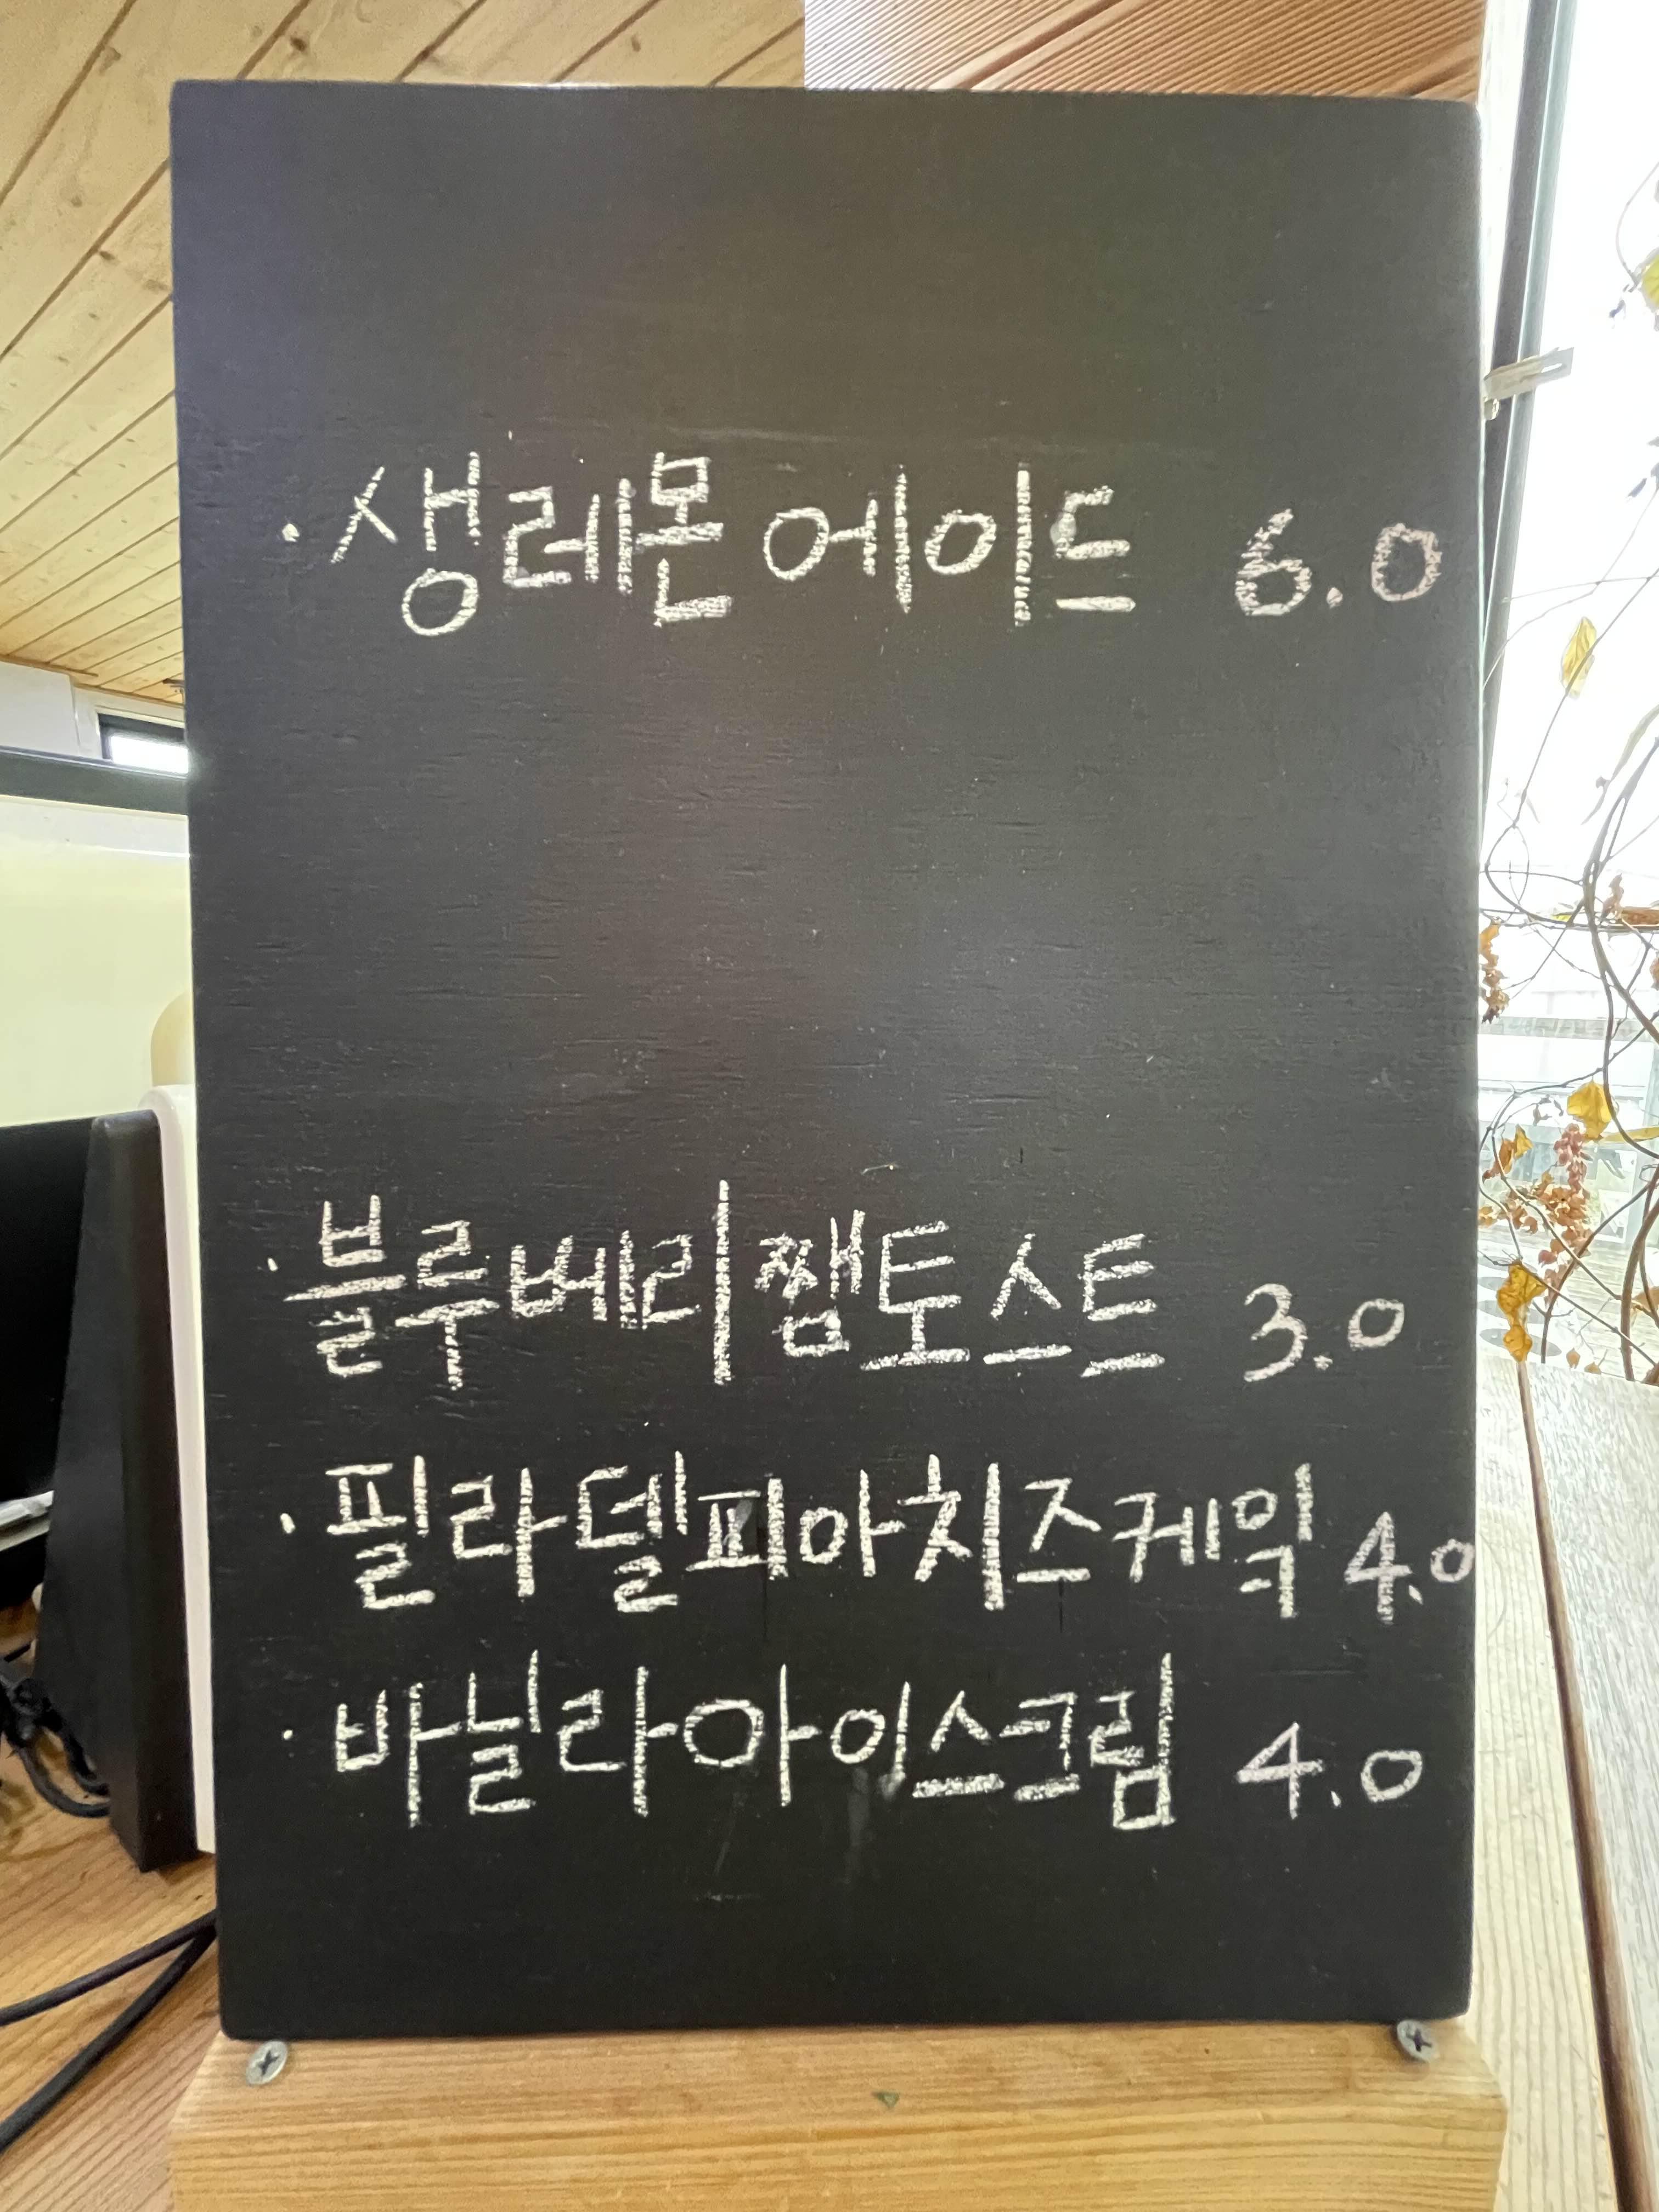 · 생레몬에이드 6.0
· 블루베리쨈토스트 3.0
· 필라델피아치즈케익 4.0
· 바닐라아이스크림 4.0